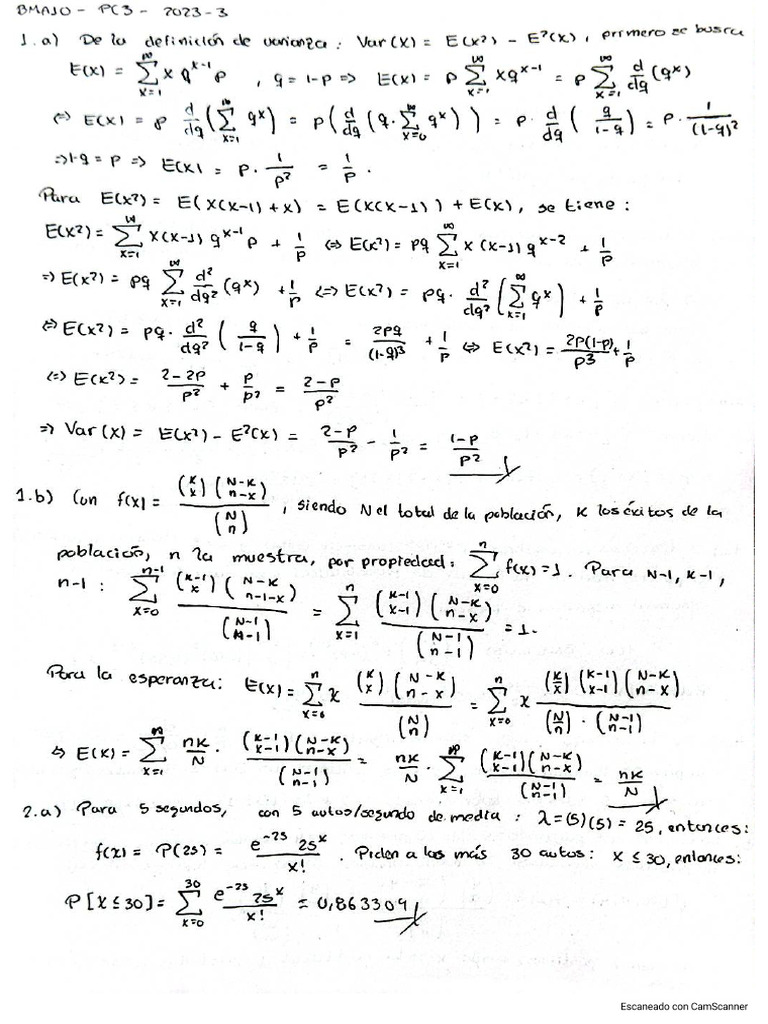 BMA10 - PC3 - 2023-3
1.a) De la definición de varianza: Var(X) = E(X²) - E²(X), primero se busca
E(X) = ∑_{x=1}^{∞} x q^{x-1} p , q = 1-p => E(X) = p ∑_{x=1}^{∞} x q^{x-1} = p ∑_{x=1}^{∞} d/dq (q^x)
<=> E(X) = p d/dq (∑_{x=1}^{∞} q^x) = p (d/dq (q · ∑_{x=0}^{∞} q^x)) = p · d/dq (q/(1-q)) = p · 1/(1-q)²
=> 1-q = p => E(X) = p · 1/p² = 1/p .
Para E(X²) = E(X(X-1) + X) = E(X(X-1)) + E(X), se tiene :
E(X²) = ∑_{x=1}^{∞} x(x-1) q^{x-1} p + 1/p <=> E(X²) = pq ∑_{x=1}^{∞} x(x-1) q^{x-2} + 1/p
=> E(X²) = pq ∑_{x=1}^{∞} d²/dq² (q^x) + 1/p <=> E(X²) = pq · d²/dq² (∑_{x=1}^{∞} q^x) + 1/p
<=> E(X²) = pq · d²/dq² (q/(1-q)) + 1/p = 2pq/(1-q)³ + 1/p <=> E(X²) = 2p(1-p)/p³ + 1/p
<=> E(X²) = (2-2p)/p² + p/p² = (2-p)/p²
=> Var(X) = E(X²) - E²(X) = (2-p)/p² - 1/p² = (1-p)/p²
1.b) Con f(x) = (K x)(N-K n-x)/(N n) , siendo N el total de la población, K los éxitos de la
población, n la muestra, por propiedad: ∑_{x=0}^{n} f(x) = 1. Para N-1, K-1,
n-1 : ∑_{x=0}^{n-1} (K-1 x)(N-K n-1-x)/(N-1 n-1) = ∑_{x=1}^{n} (K-1 x-1)(N-K n-x)/(N-1 n-1) = 1.
Para la esperanza: E(X) = ∑_{x=0}^{n} x (K x)(N-K n-x)/(N n) = ∑_{x=0}^{n} x (K/x)(K-1 x-1)(N-K n-x)/((N/n) · (N-1 n-1))
<=> E(X) = ∑_{x=1}^{n} nK/N · (K-1 x-1)(N-K n-x)/(N-1 n-1) = nK/N · ∑_{x=1}^{n} (K-1 x-1)(N-K n-x)/(N-1 n-1) = nK/N
2.a) Para 5 segundos, con 5 autos/segundo de media : λ = (5)(5) = 25, entonces:
f(x) = P(25) = e^{-25} 25^x / x! . Piden a los más 30 autos: x ≤ 30, entonces:
P[X ≤ 30] = ∑_{x=0}^{30} e^{-25} 25^x / x! = 0,863309
Escaneado con CamScanner